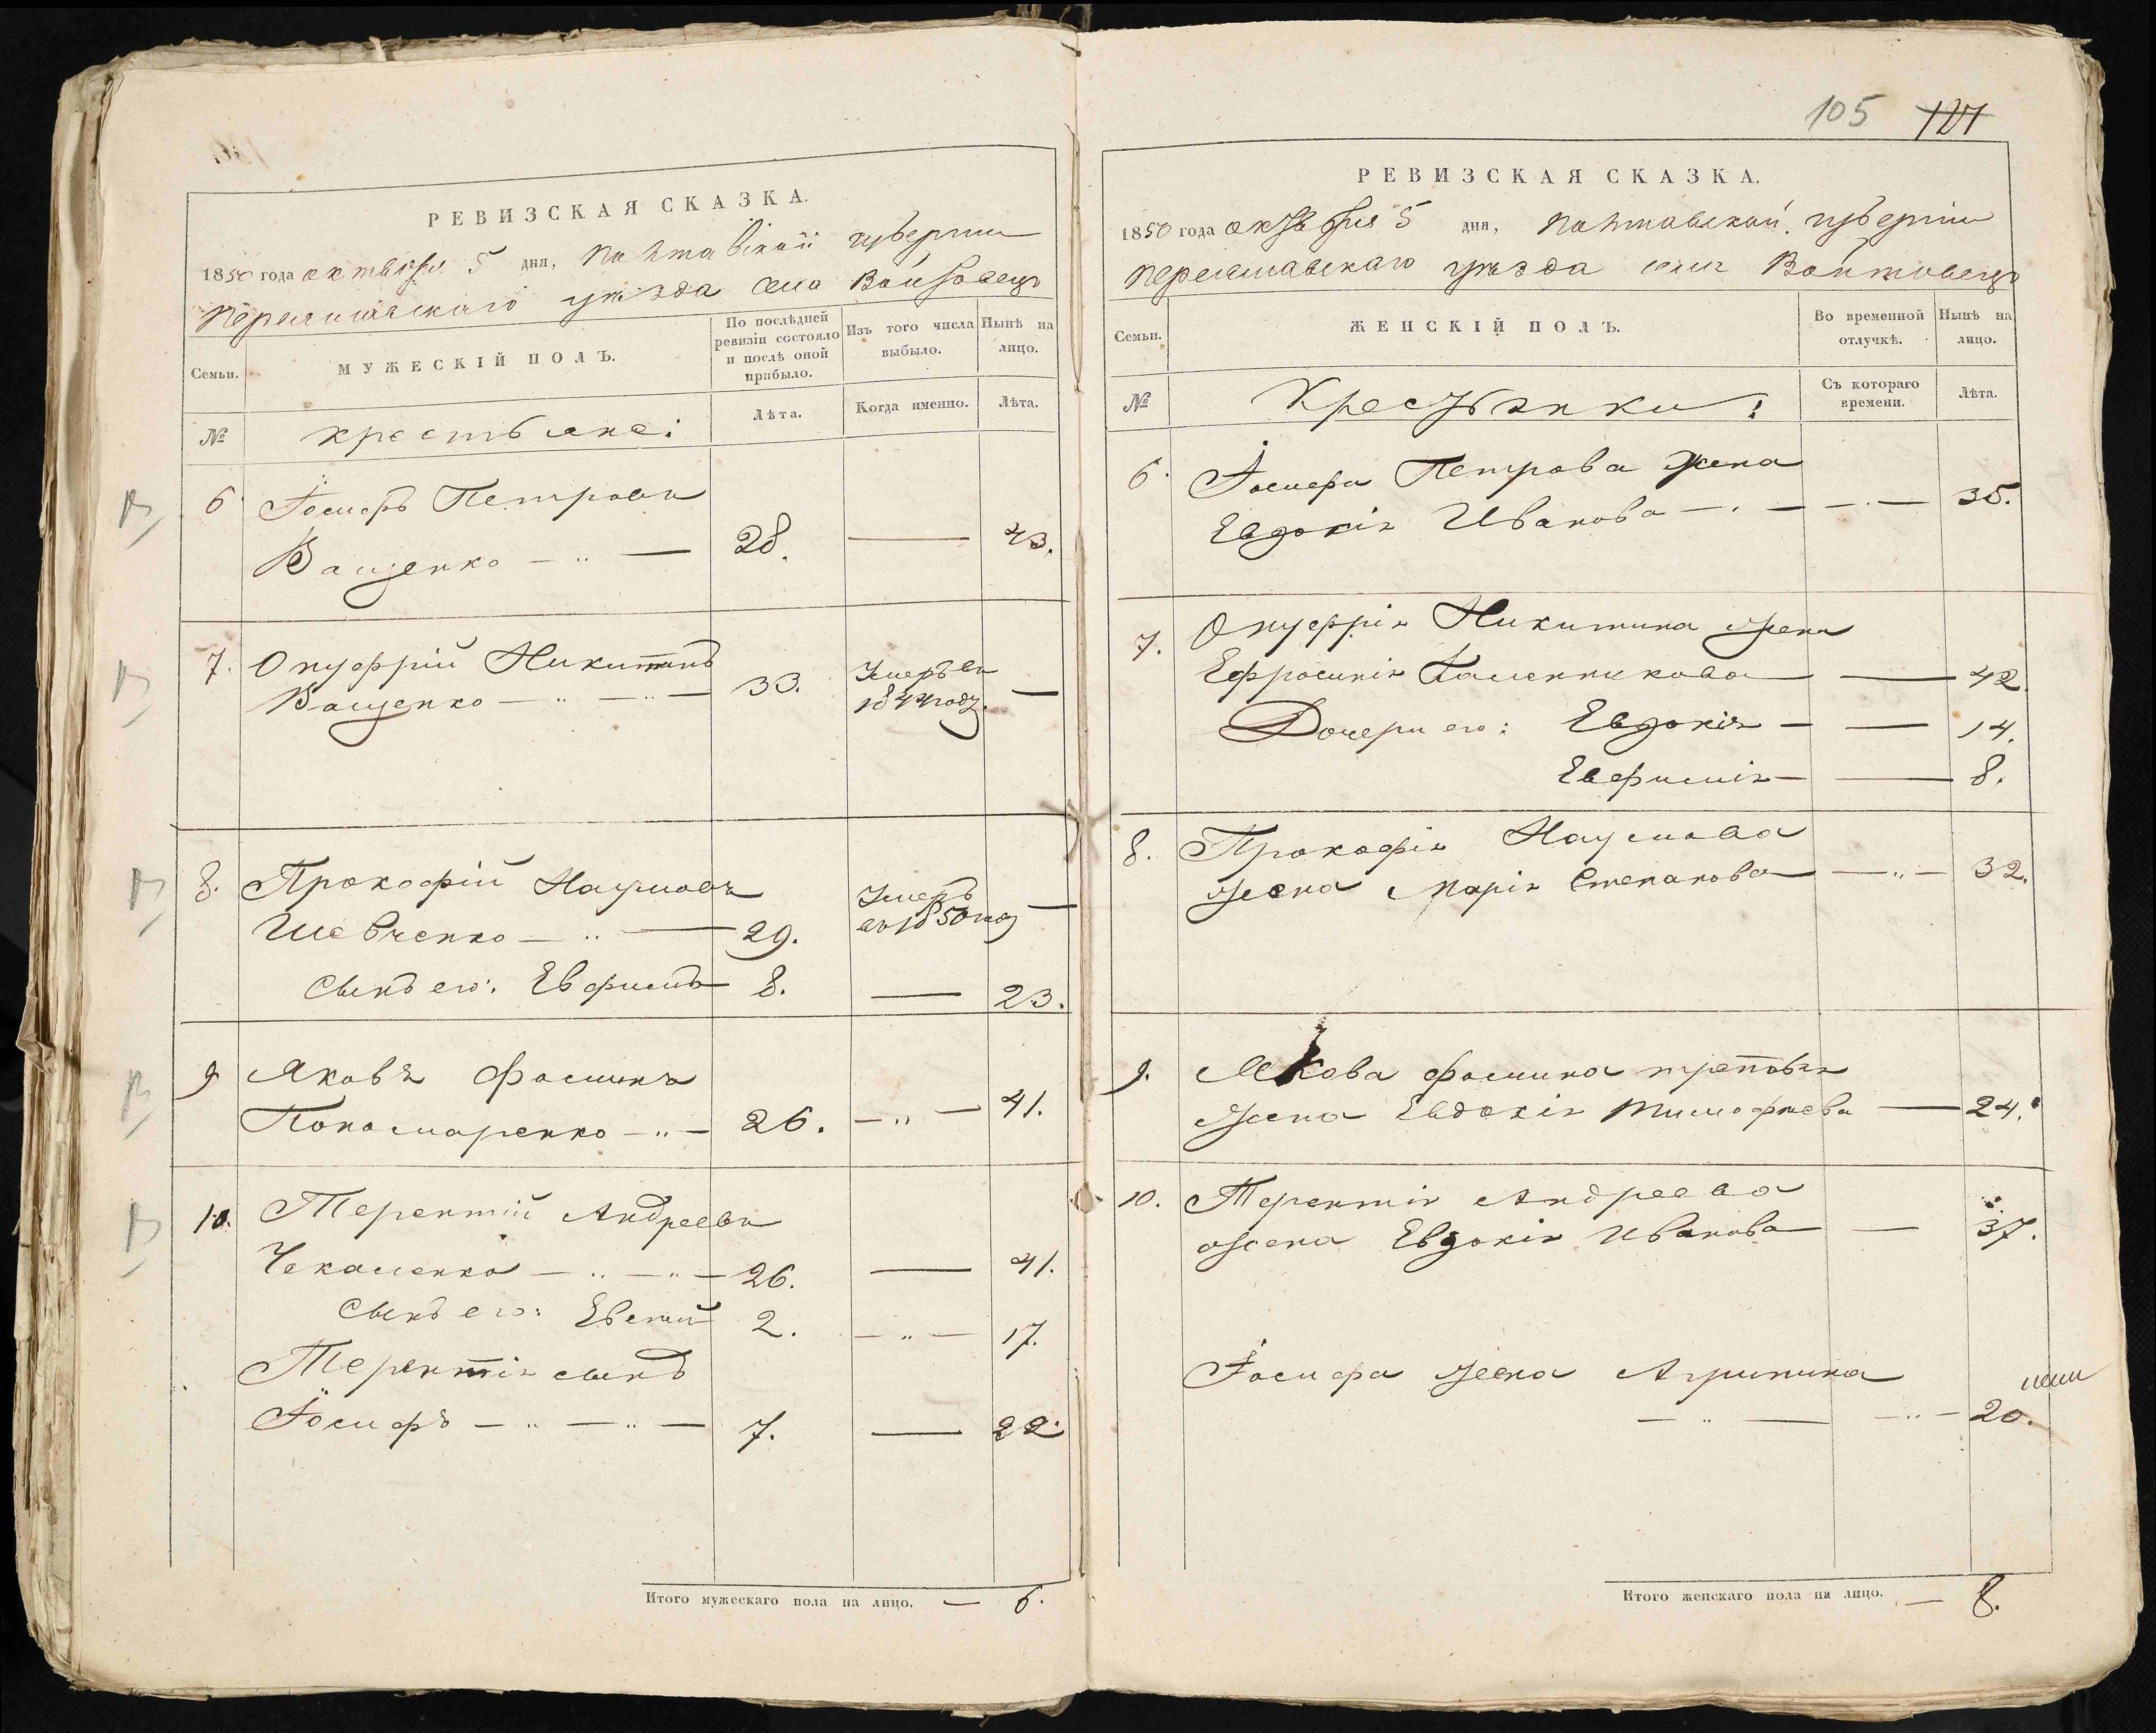 РЕВИЗСКАЯ СКАЗКА.
1850 года октября 5 дня, Полтавской губернии
Переяславскаго уѣзда села Войтовецъ
Семьи.
МУЖЕСКІЙ ПОЛЪ.
По послѣдней ревизіи состояло и послѣ оной прибыло.
Изъ того числа выбыло.
Нынѣ на лицо.
№
крестьяне:
Лѣта.
Когда именно.
Лѣта.
6 Іосифъ Петровъ
Ващенко — „ — 28. — 43.
7. Онуфрій Никитинъ Умеръ въ
Ващенко — „ — „ — 33. 1844 году. —
8. Прокофій Наумовъ Умеръ
Шевченко — „ — 29. въ 1850 году —
Сынъ его: Евфимъ 8. — 23.
9 Яковъ Фоминъ
Пономаренко — „ — 26. — „ — 41.
10. Терентій Андреевъ
Чекаленко — „ — „ — 26. — 41.
Сынъ его: 2. — „ — 17.
Терентія сынъ
Іосифъ — „ — „ — 7. — 22.
Итого мужескаго пола на лицо. — 6.
105 121
РЕВИЗСКАЯ СКАЗКА.
1850 года октября 5 дня, Полтавской губерніи
Переяславскаго уѣзда села Войтовецъ
Семьи.
ЖЕНСКІЙ ПОЛЪ.
Во временной отлучкѣ.
Нынѣ на лицо.
№
Крестьянки:
Съ котораго времени.
Лѣта.
6. Іосифа Петрова жена
Евдокія Иванова — . — — . — 35.
7. Онуфрія Никитина жена
Ефросинія — 42.
Дочери его: Евдокія — — 14.
Евфимія — — 8.
8. Прокофія Наумова
жена Марія Степанова — „ — 32.
9. Якова Фомина третья
жена Евдокія Тимофѣева — 24.
10. Терентія Андреева
жена Евдокія Иванова — 37.
Іосифа жена Агрипина
— „ — — „ — 20.
Итого женскаго пола на лицо. — 8.